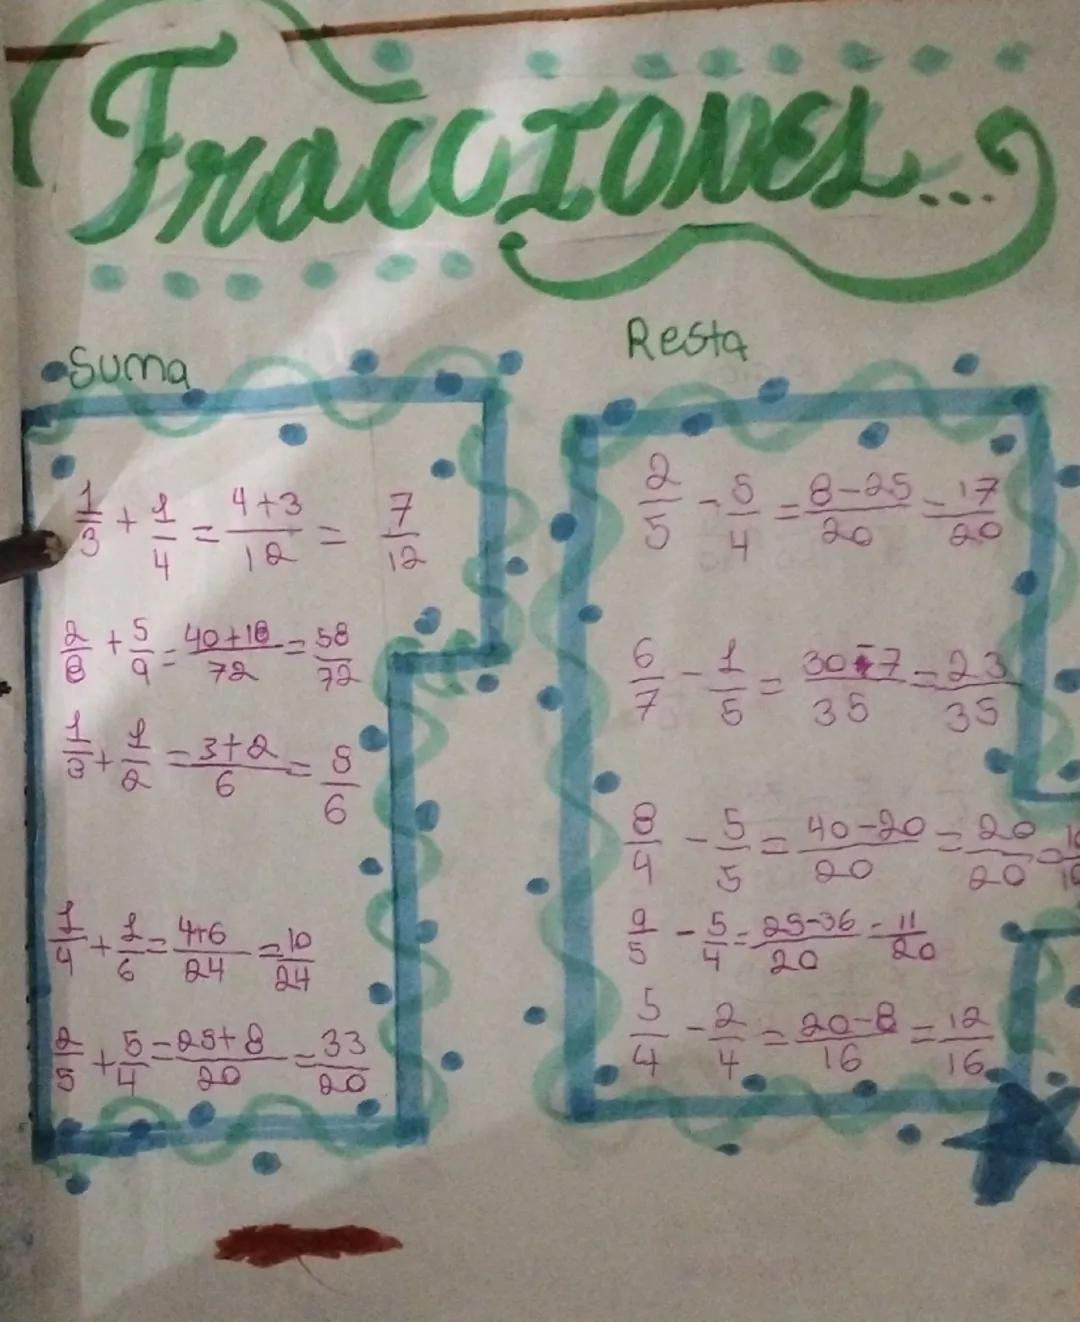 Fracciones...
Suma
1/3 + 1/4 = 4+3/12 = 7/12
2/8 + 5/9 = 40+18/72 = 58/72
1/3 + 1/2 = 3+2/6 = 5/6
1/4 + 1/6 = 4+6/24 = 10/24
2/5 + 5/4 = 25+8/20 = 33/20
Resta
2/5 - 5/4 = 8-25/20 = 17/20
6/7 - 1/5 = 30-7/35 = 23/35
8/4 - 5/5 = 40-20/20 = 20/20 = 10/10
9/5 - 5/4 = 25-36/20 = 11/20
5/4 - 2/4 = 20-8/16 = 12/16